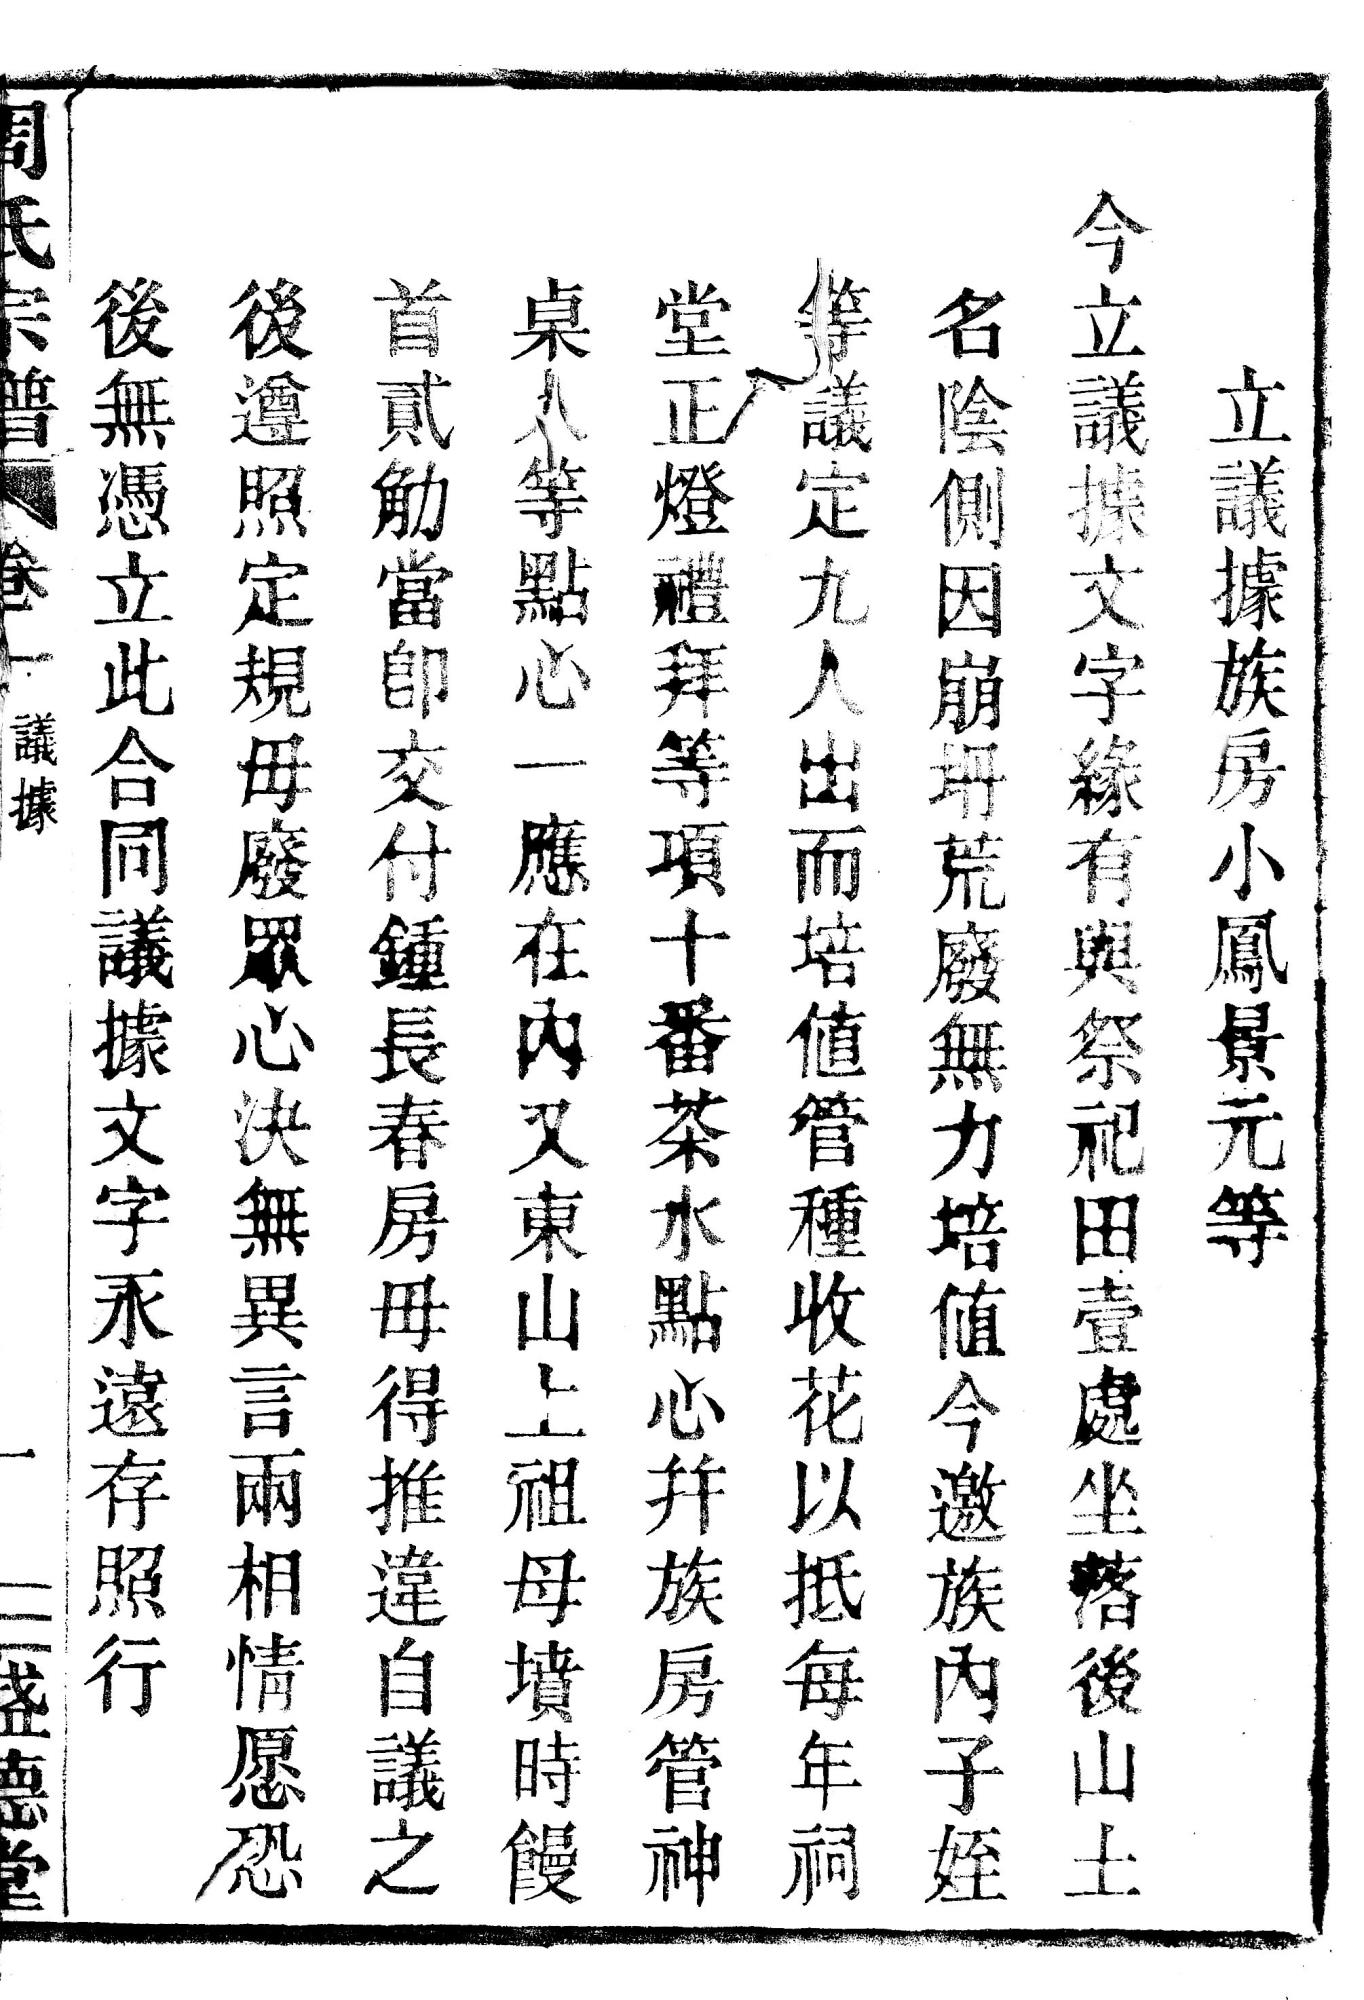 立議據族房小鳳景元等
今立議據文字緣有與祭祀田壹處坐落後山土
名陰側因崩坍荒廢無力培値今邀族內子姪
等議定九人出而培値管種收花以抵每年祠
堂正燈禮拜等項十番茶水點心幷族房管神
桌人等點心一應在內又東山上祖母墳時饅
首貳觔當卽交付鍾長春房毋得推違自議之
後遵照定規毋廢眾心決無異言兩相情愿恐
後無憑立此合同議據文字永遠存照行
周氏宗譜 卷一 議據 盛德堂